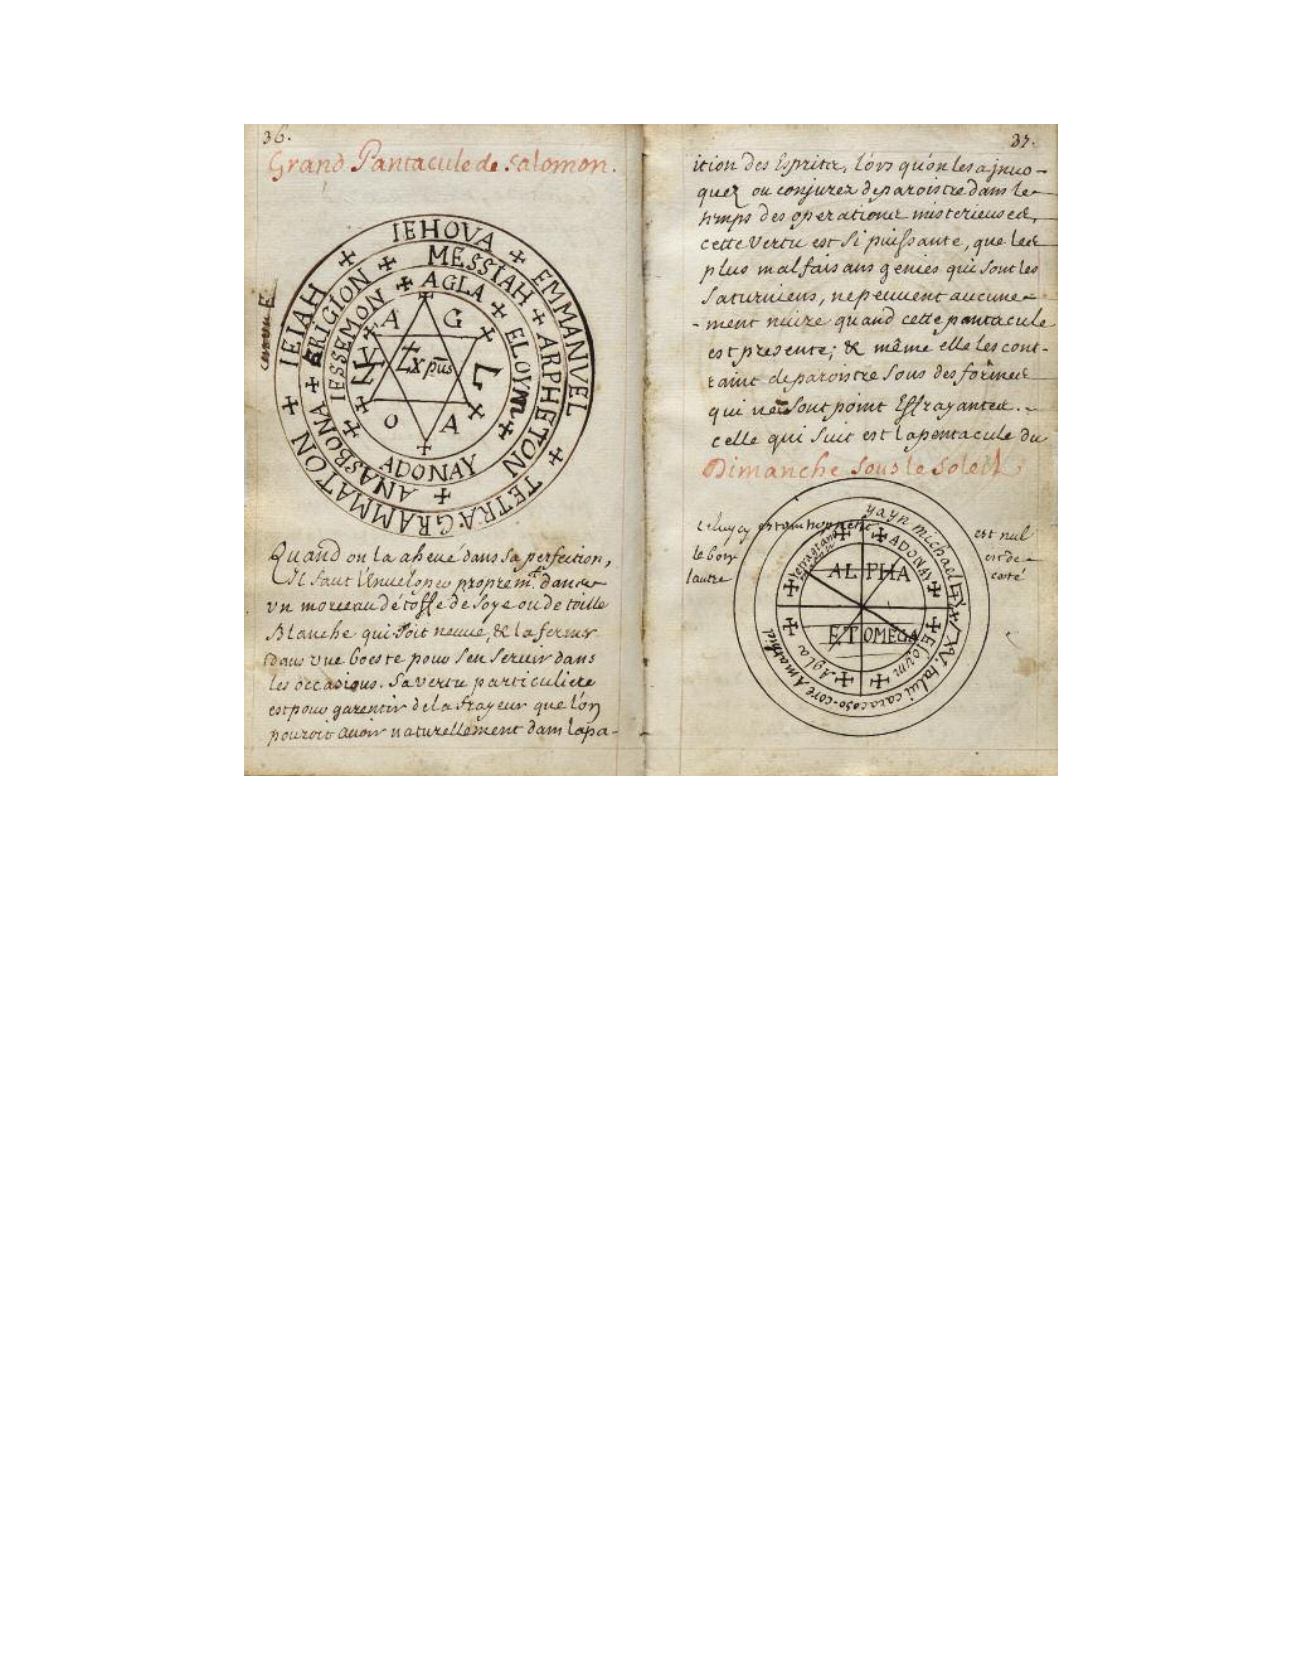 36.
Grand Pantacule de Salomon.
IEHOVA + EMMANVEL + TETRAGRAMMATON + IEIAH +
MESSIAH + ARPHETON + ANASBONA + ERIGION +
AGLA + ELOYM + ADONAY + IESSEMON +
A G L A O
Xpus
Quand on la achevé dans sa perfection,
Il faut l'Envelopeo proprem.t dans
vn morceau d'étoffe de Soye ou de toille
Blanche qui Soit neuue, & la fermer
dans vne boeste pour s'en Seruir dans
les occasions. Sa vertu particuliere
est pour garentir de la frayeur que l'on
pouroit auoir naturellement dans l'apa-
37.
ition des Esprits, lors qu'on les ajnuo-
quez ou conjurez de paroistre dans le
temps des operations misterieuses,
cette Vertu est Si puissante, que les
plus malfaisans genies qui sont les
Saturniens, ne peuuent aucune-
-ment nuire quand cette pantacule
est presente; & même elle les cont-
raint de paroistre Sous des formes
qui ne Sont point Effrayantes.
celle qui Suit est la pentacule du
Dimanche Sous le Soleil
est nul
le bon est de
lautre costé
yayn michael
halui caracaso-core Amathiel
ADONAY + Eloym + Agla +
ALPHA
ET OMEGA